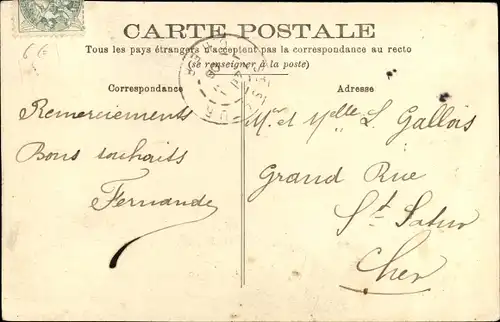 66
CARTE POSTALE
Tous les pays étrangers n'acceptent pas la correspondance au recto
(se renseigner à la poste)
Correspondance
Remerciements
Bons souhaits
Fernande
Adresse
Mr et Melle L. Gallois
Grand Rue
St Satur
Cher